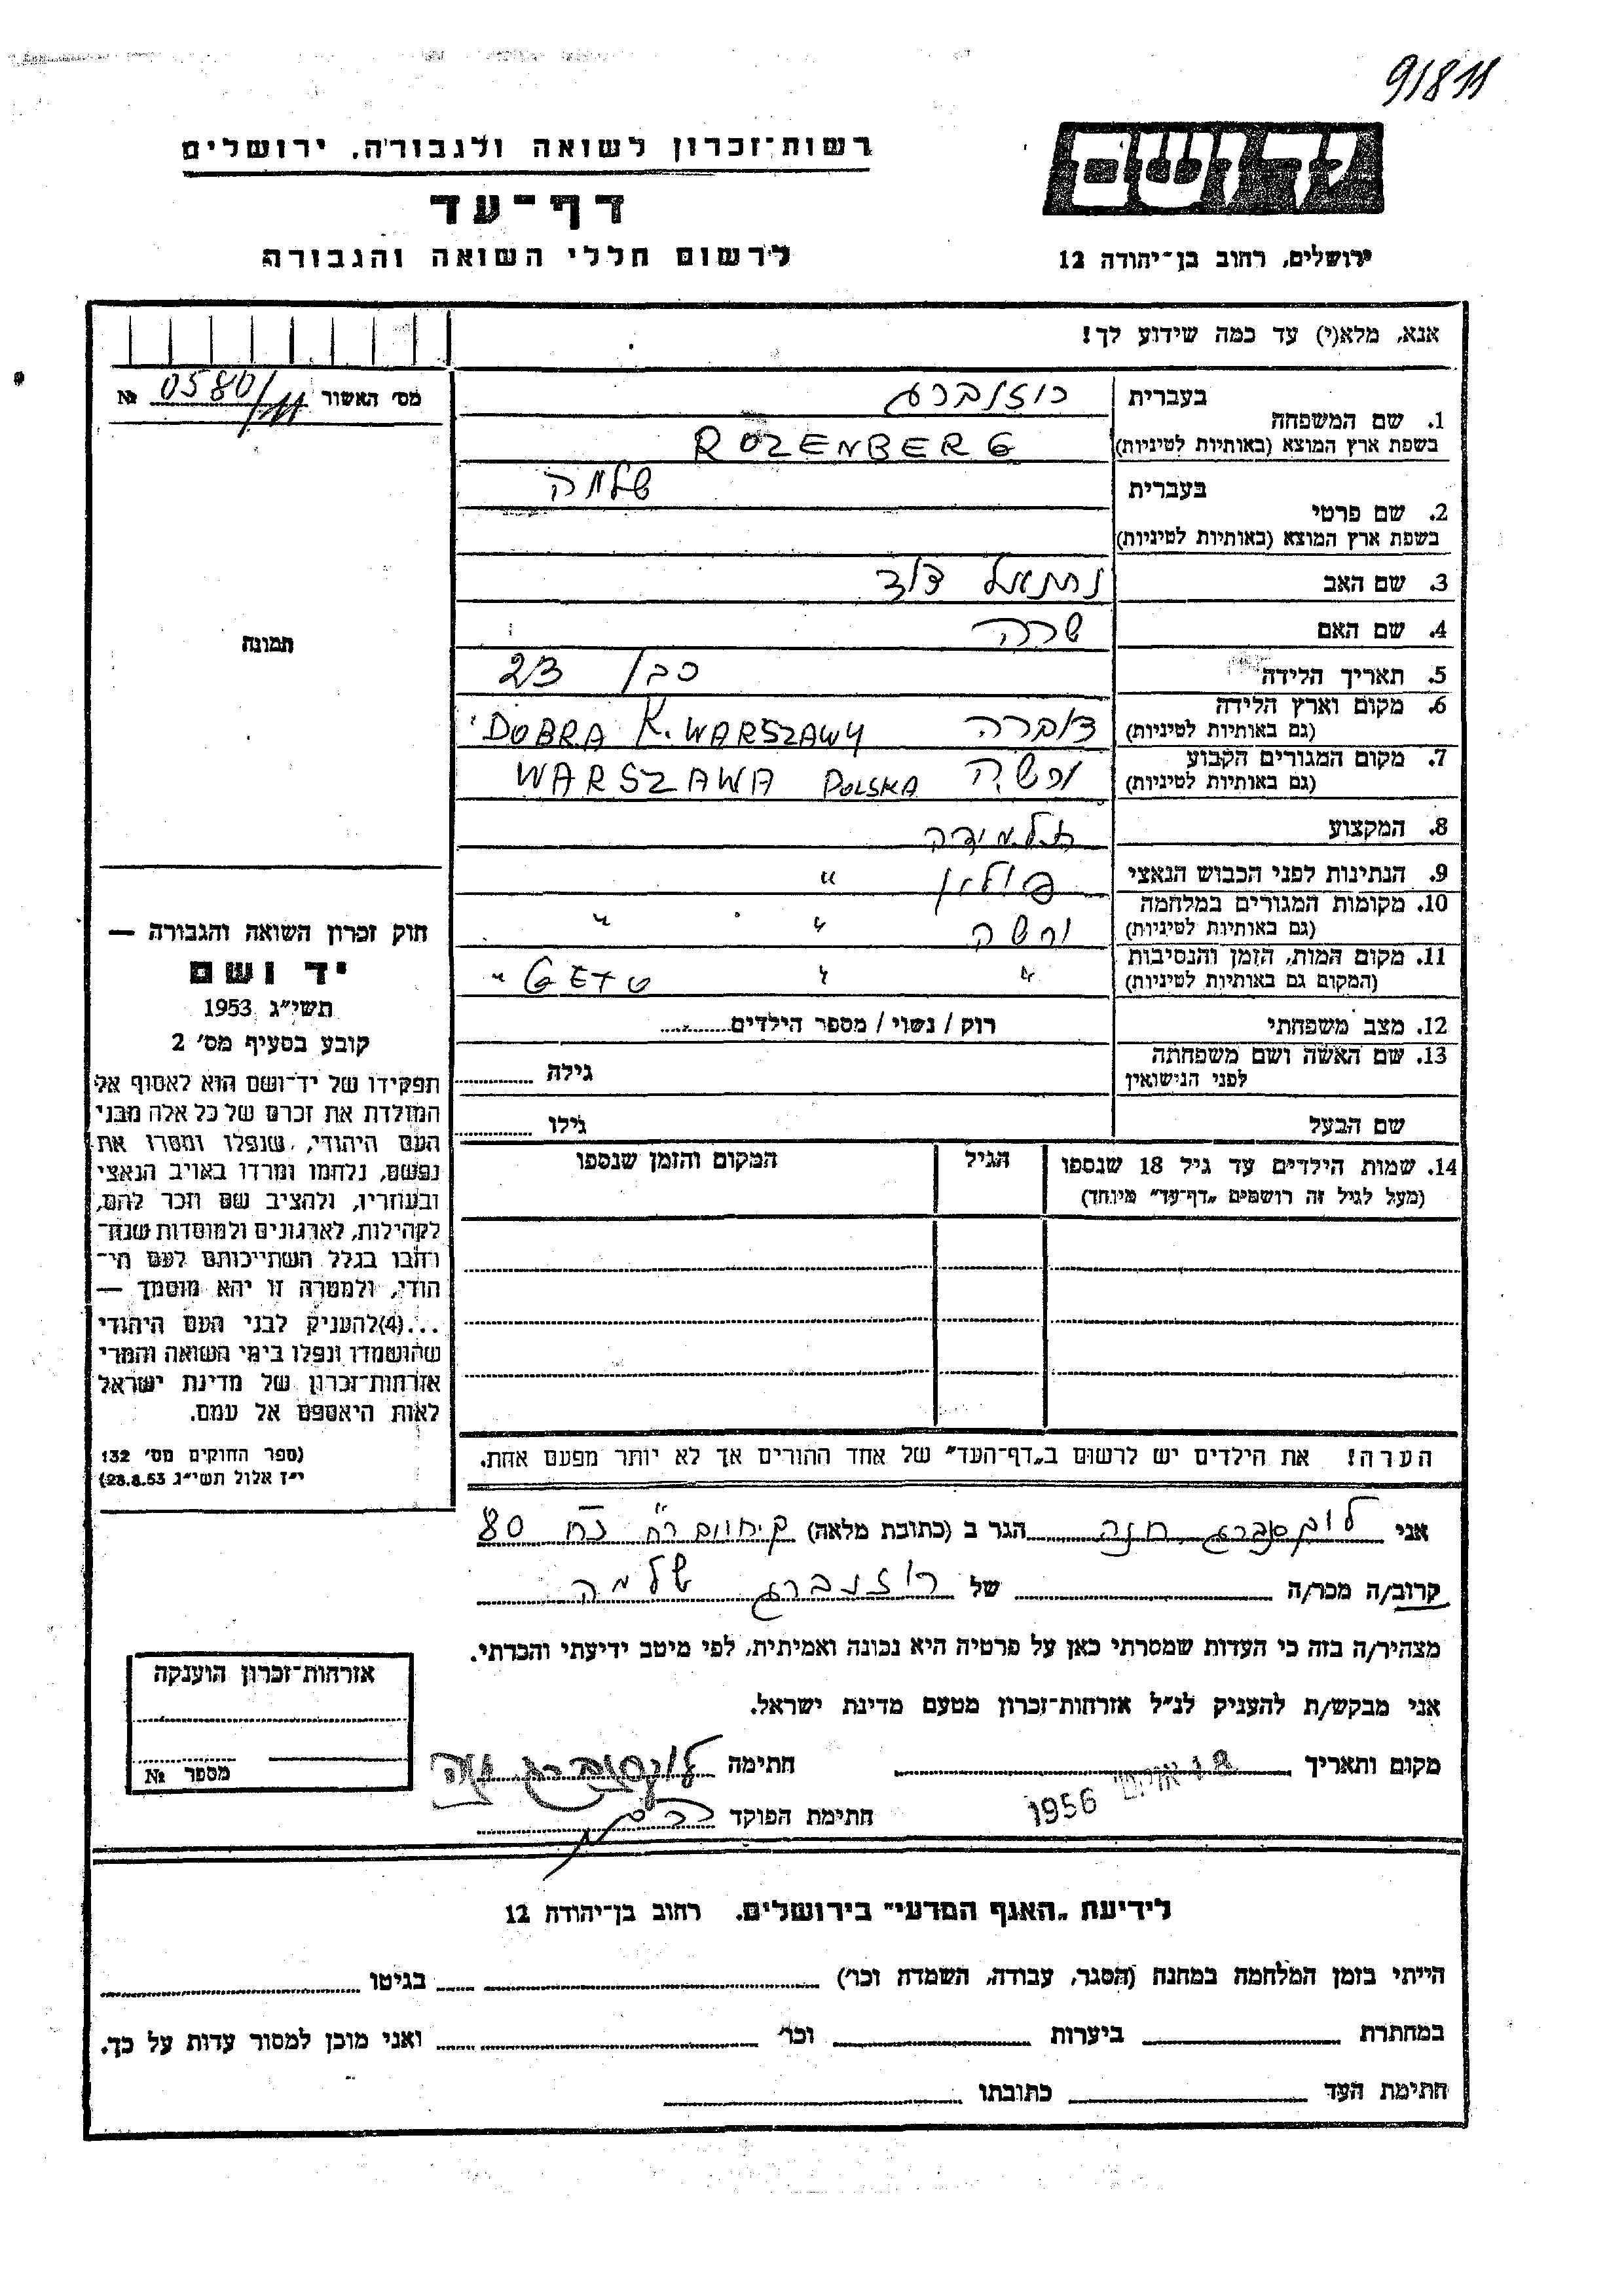 91811
יד ושם
רשות־זכרון לשואה ולגבורה, ירושלים
דף־עד
לרשום חללי השואה והגבורה
ירושלים, רחוב בן־יהודה 12
אנא, מלא(י) עד כמה שידוע לך!
מס׳ האשור № 0580/11
1. שם המשפחה
בעברית רוזנברג
בשפת ארץ המוצא (באותיות לטיניות) ROZENBERG
2. שם פרטי
בעברית שלמה
בשפת ארץ המוצא (באותיות לטיניות)
3. שם האב נתנאל דוד
4. שם האם שרה
5. תאריך הלידה כבן 23
6. מקום וארץ הלידה
(גם באותיות לטיניות) דוברה DOBRA K. WARSZAWY
7. מקום המגורים הקבוע
(גם באותיות לטיניות) ורשה WARSZAWA POLSKA
8. המקצוע
9. הנתינות לפני הכבוש הנאצי פולין "
10. מקומות המגורים במלחמה
(גם באותיות לטיניות) ורשה " "
11. מקום המות, הזמן והנסיבות
(המקום גם באותיות לטיניות) " " GETO "
12. מצב משפחתי רוק / נשוי / מספר הילדים
13. שם האשה ושם משפחתה
לפני הנישואין גילה
שם הבעל גילו
14. שמות הילדים עד גיל 18 שנספו הגיל המקום והזמן שנספו
(מעל לגיל זה רושמים „דף־עד" מיוחד)
הערה! את הילדים יש לרשום ב„דף־העד" של אחד ההורים אך לא יותר מפעם אחת.
תמונה
חוק זכרון השואה והגבורה —
יד ושם
תשי״ג 1953
קובע בסעיף מס׳ 2
תפקידו של יד־ושם הוא לאסוף אל
המולדת את זכרם של כל אלה מבני
העם היהודי, שנפלו ומסרו את
נפשם, נלחמו ומרדו באויב הנאצי
ובעוזריו, ולהציב שם וזכר להם,
לקהילות, לארגונים ולמוסדות שנח־
רבו בגלל השתייכותם לעם הי־
הודי, ולמטרה זו יהא מוסמך —
...(4) להעניק לבני העם היהודי
שהושמדו ונפלו בימי השואה והמרי
אזרחות־זכרון של מדינת ישראל
לאות היאספם אל עמם.
(ספר החוקים מס׳ 132
י״ז אלול תשי״ג 28.8.53)
אני חנה הגר ב (כתובת מלאה) 80
קרוב/ה מכר/ה של רוזנברג שלמה
מצהיר/ה בזה כי העדות שמסרתי כאן על פרטיה היא נכונה ואמיתית, לפי מיטב ידיעתי והכרתי.
אני מבקש/ת להעניק לנ״ל אזרחות־זכרון מטעם מדינת ישראל.
מקום ותאריך 1956 חתימה
חתימת הפוקד
אזרחות־זכרון הוענקה
מספר №
לידיעת „האגף המדעי" בירושלים, רחוב בן־יהודה 12
הייתי בזמן המלחמה במחנה (הסגר, עבודה, השמדה וכו׳) בגיטו
במחתרת ביערות וכו׳ ואני מוכן למסור עדות על כך.
חתימת העד כתובתו